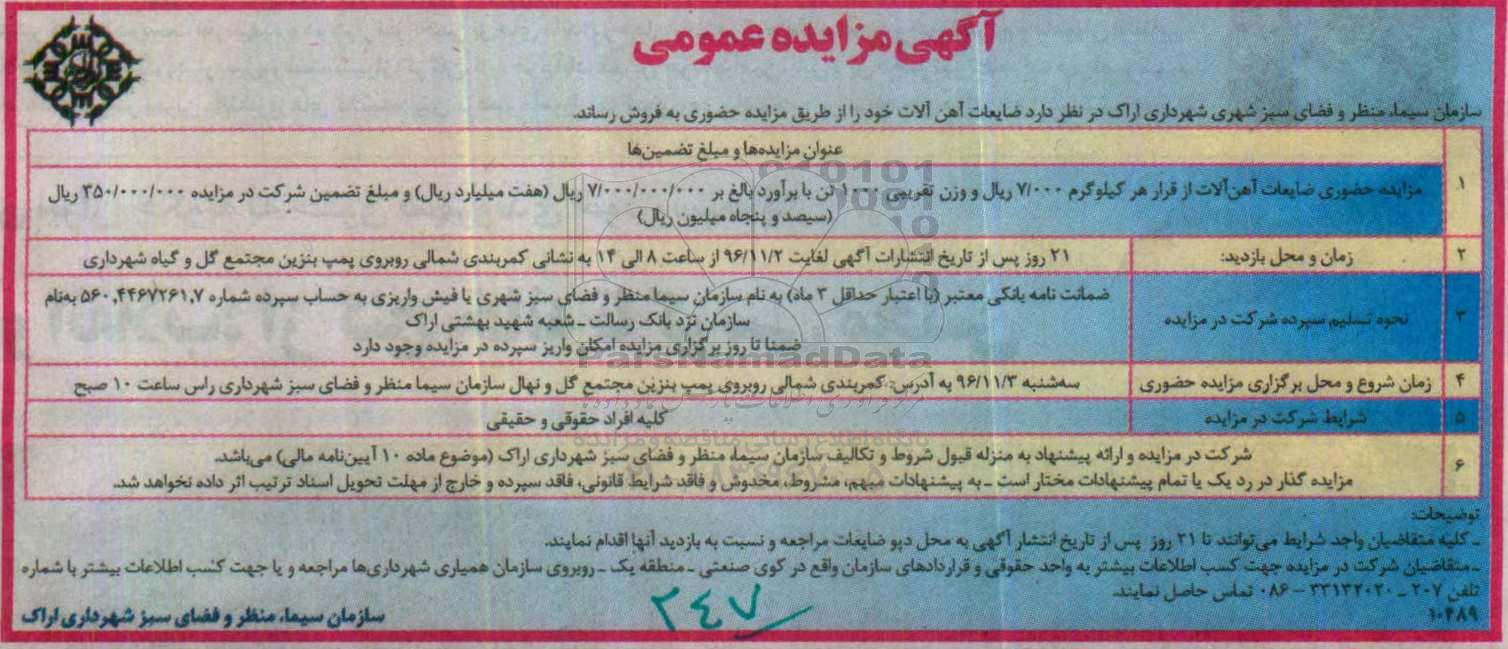 آگهی مزایده عمومی
سازمان سیما، منظر و فضای سبز شهری شهرداری اراک در نظر دارد ضایعات آهن آلات خود را از طریق مزایده حضوری به فروش رساند.
عنوان مزایده‌ها و مبلغ تضمین‌ها
۱ مزایده حضوری ضایعات آهن‌آلات از قرار هر کیلوگرم ۷/۰۰۰ ریال و وزن تقریبی ۱۰۰۰ تن با برآورد بالغ بر ۷/۰۰۰/۰۰۰/۰۰۰ ریال (هفت میلیارد ریال) و مبلغ تضمین شرکت در مزایده ۳۵۰/۰۰۰/۰۰۰ ریال
(سیصد و پنجاه میلیون ریال)
۲ زمان و محل بازدید: ۲۱ روز پس از تاریخ انتشارات آگهی لغایت ۹۶/۱۱/۲ از ساعت ۸ الی ۱۴ به نشانی کمربندی شمالی روبروی پمپ بنزین مجتمع گل و گیاه شهرداری
۳ نحوه تسلیم سپرده شرکت در مزایده ضمانت نامه بانکی معتبر (با اعتبار حداقل ۳ ماه) به نام سازمان سیما منظر و فضای سبز شهری یا فیش واریزی به حساب سپرده شماره ۵۶۰,۴۴۶۷۲۶۱,۷ به‌نام
سازمان نزد بانک رسالت ـ شعبه شهید بهشتی اراک
ضمنا تا روز برگزاری مزایده امکان واریز سپرده در مزایده وجود دارد
۴ زمان شروع و محل برگزاری مزایده حضوری سه‌شنبه ۹۶/۱۱/۳ به آدرس: کمربندی شمالی روبروی پمپ بنزین مجتمع گل و نهال سازمان سیما منظر و فضای سبز شهرداری راس ساعت ۱۰ صبح
۵ شرایط شرکت در مزایده کلیه افراد حقوقی و حقیقی
۶ شرکت در مزایده و ارائه پیشنهاد به منزله قبول شروط و تکالیف سازمان سیما، منظر و فضای سبز شهرداری اراک (موضوع ماده ۱۰ آیین‌نامه مالی) می‌باشد.
مزایده گذار در رد یک یا تمام پیشنهادات مختار است ـ به پیشنهادات مبهم، مشروط، مخدوش و فاقد شرایط قانونی، فاقد سپرده و خارج از مهلت تحویل اسناد ترتیب اثر داده نخواهد شد.
توضیحات:
ـ کلیه متقاضیان واجد شرایط می‌توانند تا ۲۱ روز پس از تاریخ انتشار آگهی به محل دپو ضایعات مراجعه و نسبت به بازدید آنها اقدام نمایند.
ـ متقاضیان شرکت در مزایده جهت کسب اطلاعات بیشتر به واحد حقوقی و قراردادهای سازمان واقع در کوی صنعتی ـ منطقه یک ـ روبروی سازمان همیاری شهرداری‌ها مراجعه و یا جهت کسب اطلاعات بیشتر با شماره
تلفن ۲۰۷ ـ ۳۳۱۳۲۰۲۰ – ۰۸۶ تماس حاصل نمایند.
۱۰۴۸۹
سازمان سیما، منظر و فضای سبز شهرداری اراک
۲۴۷
ParsNamadData